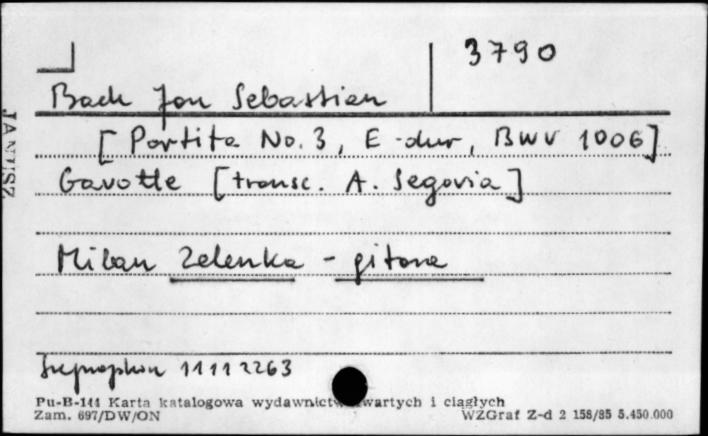 3790
Bach Jan Sebastian
[Partita No. 3, E-dur, BWV 1006]
Gavotte [transc. A. Segovia]
Milan Zelenka - gitara
Supraphon 11112263
Pu-B-144 Karta katalogowa wydawnictw zwartych i ciągłych
Zam. 697/DW/ON WZGraf Z-d 2 158/85 5.450.000
JANUSZ